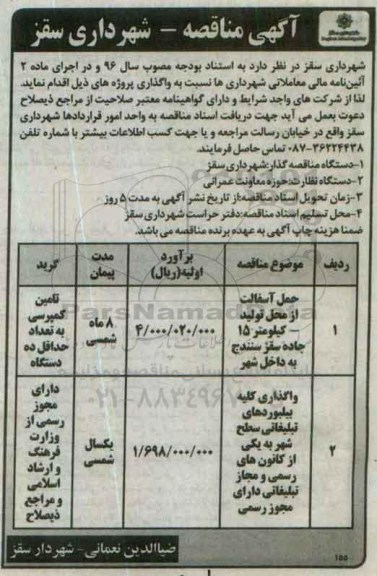 آگهی مناقصه - شهرداری سقز
شهرداری سقز در نظر دارد به استناد بودجه مصوب سال ۹۶ و در اجرای ماده ۲
آئین‌نامه مالی معاملاتی شهرداری ها نسبت به واگذاری پروژه های ذیل اقدام نماید.
لذا از شرکت های واجد شرایط و دارای گواهینامه معتبر صلاحیت از مراجع ذیصلاح
دعوت بعمل می آید جهت دریافت اسناد مناقصه به واحد امور قراردادها شهرداری
سقز واقع در خیابان رسالت مراجعه و یا جهت کسب اطلاعات بیشتر با شماره تلفن
۰۸۷-۳۶۲۲۴۴۳۸ تماس حاصل فرمایند.
۱-دستگاه مناقصه گذار:شهرداری سقز
۲-دستگاه نظارت:حوزه معاونت عمرانی
۳-زمان تحویل اسناد مناقصه:از تاریخ نشر آگهی به مدت ۵ روز
۴-محل تسلیم اسناد مناقصه:دفتر حراست شهرداری سقز
ضمنا هزینه چاپ آگهی به عهده برنده مناقصه می باشد.
ردیف موضوع مناقصه برآورد اولیه(ریال) مدت پیمان گرید
۱ حمل آسفالت از محل تولید – کیلومتر ۱۵ جاده سقز سنندج به داخل شهر ۴/۰۰۰/۰۲۰/۰۰۰ ۸ ماه شمسی تامین کمپرسی به تعداد حداقل ده دستگاه
۲ واگذاری کلیه بیلبوردهای تبلیغاتی سطح شهر به یکی از کانون های رسمی و مجاز تبلیغاتی دارای مجوز رسمی ۱/۶۹۸/۰۰۰/۰۰۰ یکسال شمسی دارای مجوز رسمی از وزارت فرهنگ و ارشاد اسلامی و مراجع ذیصلاح
ضیاالدین نعمانی- شهردار سقز
۱۵۵